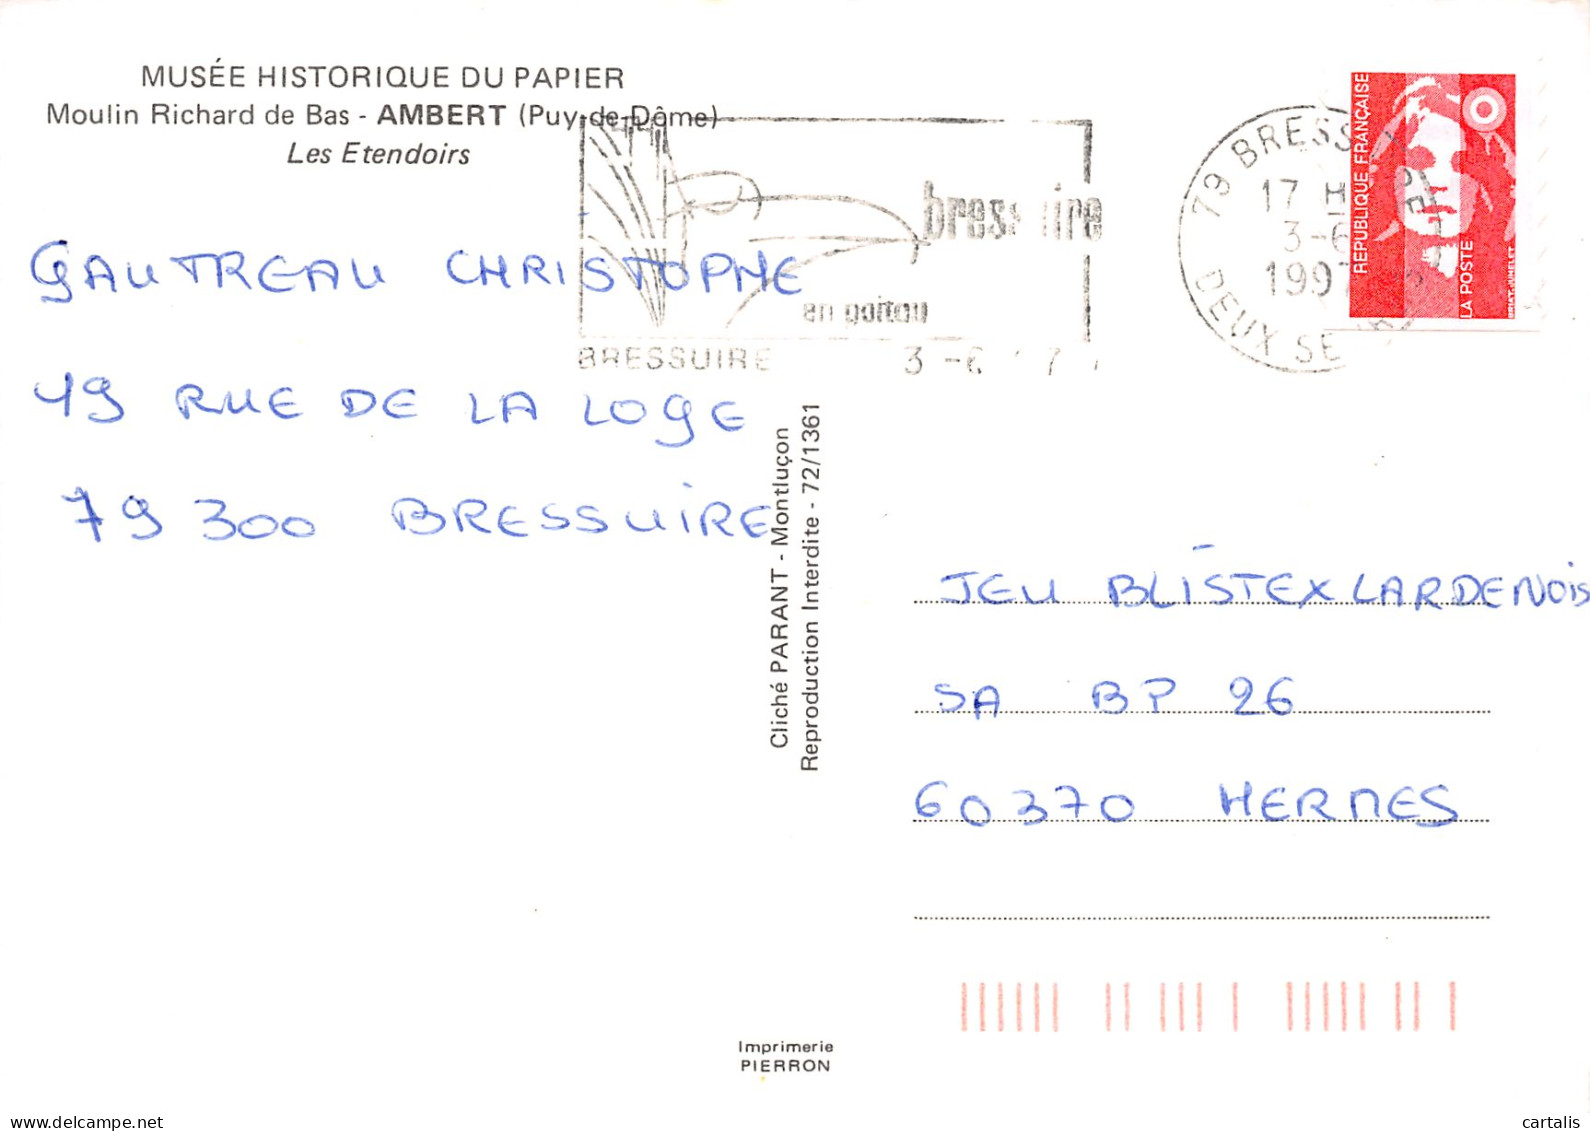 MUSÉE HISTORIQUE DU PAPIER
Moulin Richard de Bas - AMBERT (Puy-de-Dôme)
Les Etendoirs
GAUTREAU CHRISTOPHE
49 RUE DE LA LOGE
79 300 BRESSUIRE
en poitou
BRESSUIRE
79 BRESS
17 H
3-6
1997
DEUX SE
RÉPUBLIQUE FRANÇAISE
LA POSTE
Cliché PARANT - Montluçon
Reproduction Interdite - 72/1361
JEU BLISTEX LARDENOIS
SA BP 26
60370 HERMES
Imprimerie
PIERRON
www.delcampe.net
cartalis